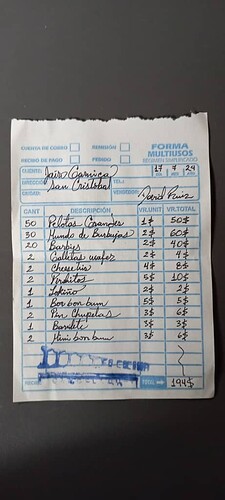 CUENTA DE COBRO REMISIÓN FORMA
MULTIUSOS
RECIBO DE PAGO PEDIDO REGIMEN SIMPLIFICADO
CLIENTE: Jairo Garnica 17 7 24
DIRECCIÓN: San Cristobal TEL.:
CIUDAD: VENDEDOR: David Ruiz
CANT DESCRIPCIÓN VR.UNIT VR.TOTAL
50 Pelotas Grandes 1$ 50$
30 Mundo de Burbujas 2$ 60$
20 Barbies 2$ 40$
2 Galletas wafer 2$ 4$
2 4$ 8$
2 5$ 10$
1 2$ 2$
1 Bon bon bum 5$ 5$
2 Pin Chupetas 3$ 6$
1 3$ 3$
2 Mini bon bum 3$ 6$
TOTAL 194$